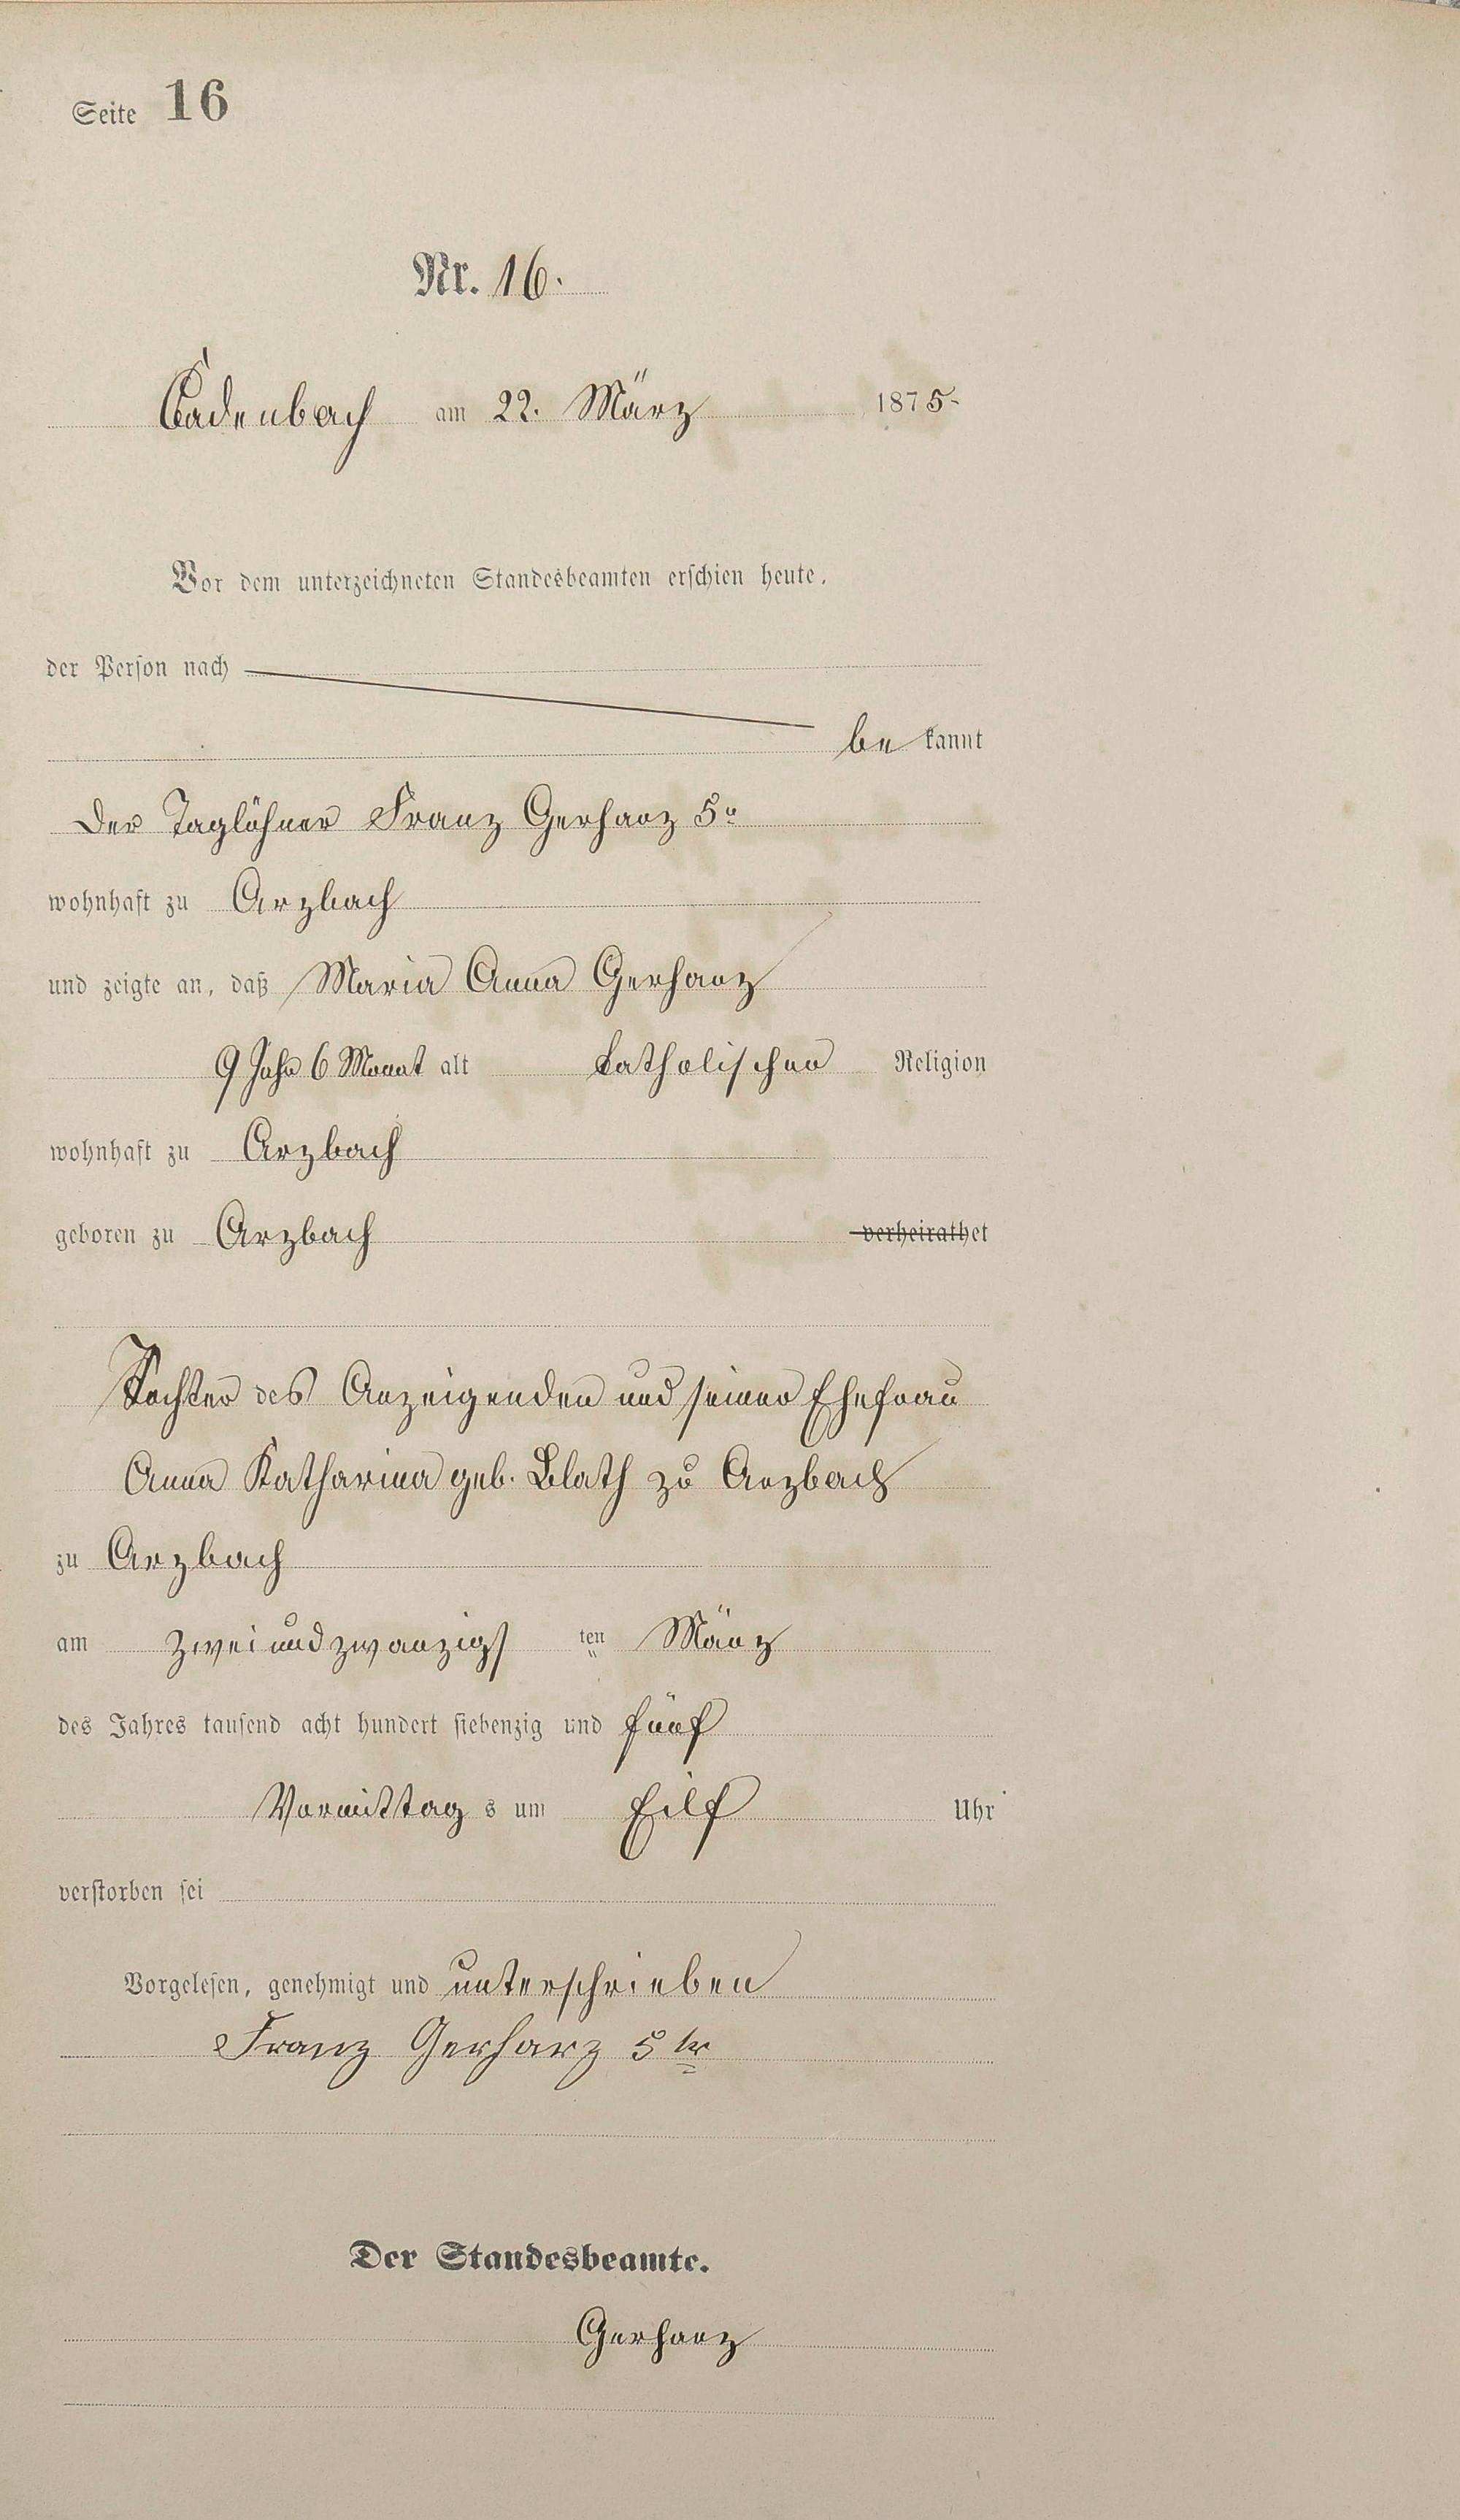 Seite 16
Nr. 16.
Cadenbach am 22. März 1875
Vor dem unterzeichneten Standesbeamten erschien heute,
der Person nach
be kannt
Der Taglöhner Franz Gerharz 5r
wohnhaft zu Arzbach
und zeigte an, daß Maria Anna Gerharz
9 Jahr 6 Monat alt katholischer Religion
wohnhaft zu Arzbach
geboren zu Arzbach verheirathet
Tochter des Anzeigenden und seiner Ehefrau
Anna Katharina geb. Blath zu Arzbach
zu Arzbach
am zweiundzwanzigs ten März
des Jahres tausend acht hundert siebenzig und fünf
Vormittag s um Eilf Uhr
verstorben sei
Vorgelesen, genehmigt und unterschrieben
Franz Gerharz 5ter
Der Standesbeamte.
Gerharz